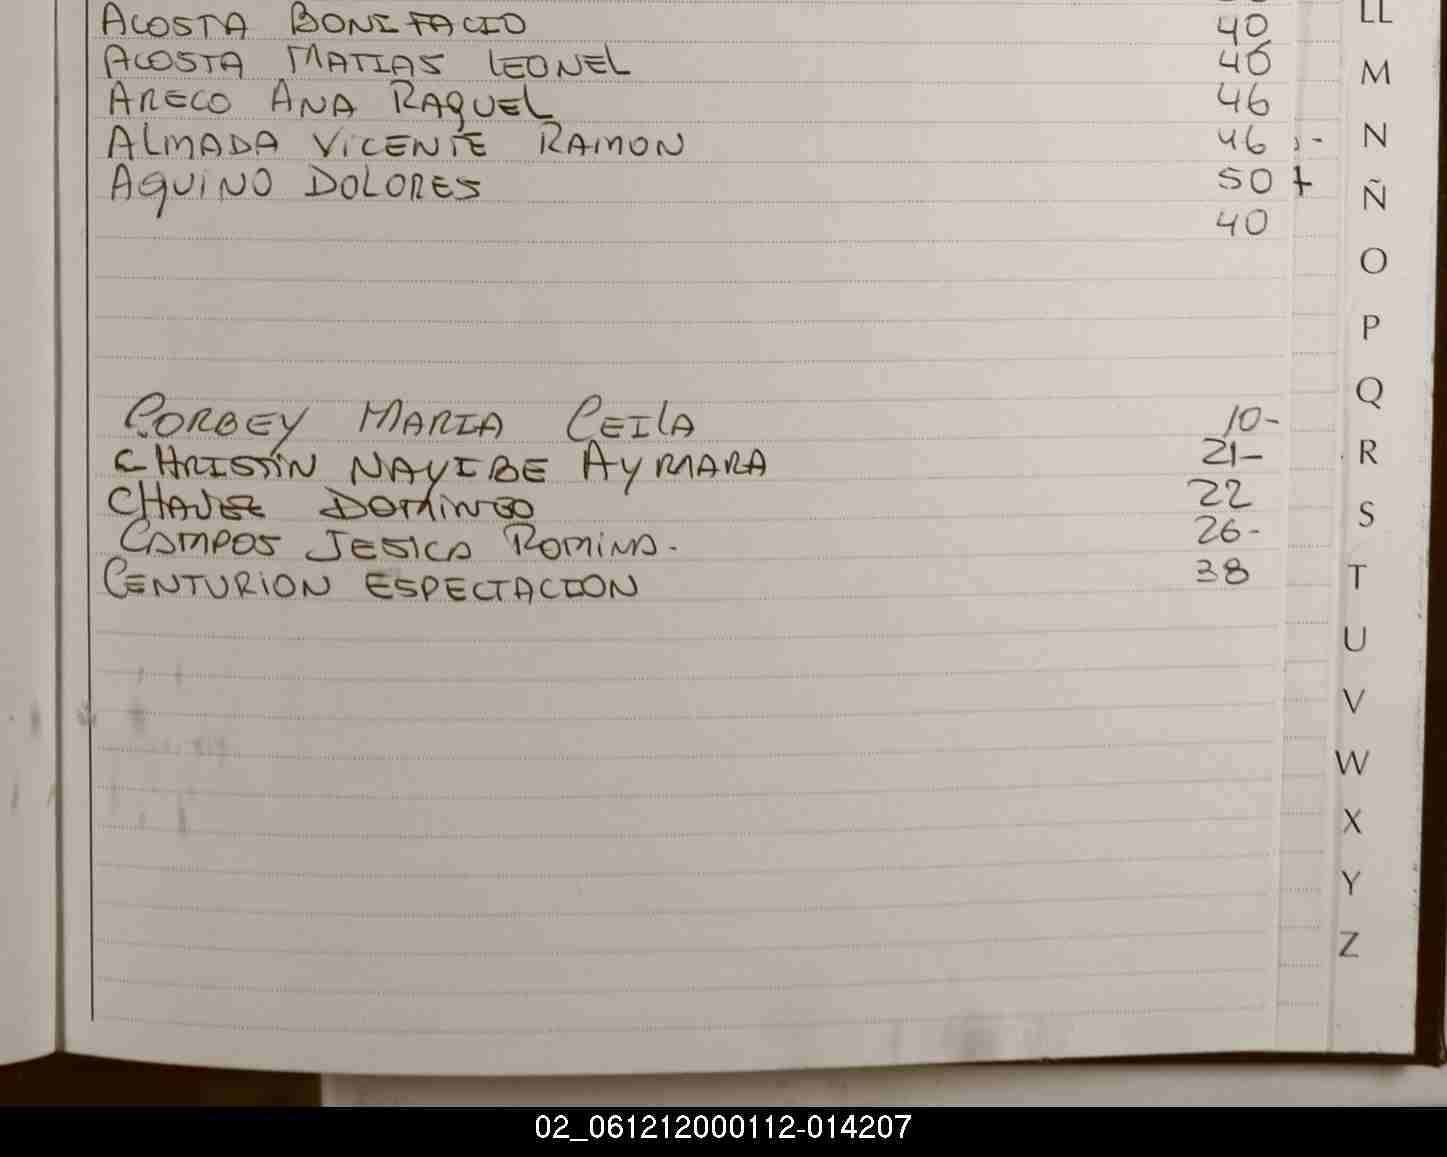 ACOSTA BONIFACIO 40
ACOSTA MATIAS LEONEL 40
ARECO ANA RAQUEL 46
ALMADA VICENTE RAMON 46 -
AQUINO DOLORES 50 +
40
CORBEY MARIA CEILA 10-
CHRISTIN NAYIBE AYMARA 21-
CHAVEZ DOMINGO 22
CAMPOS JESICA ROMINA. 26-
CENTURION ESPECTACION 38
LL
M
N
Ñ
O
P
Q
R
S
T
U
V
W
X
Y
Z
02_061212000112-014207